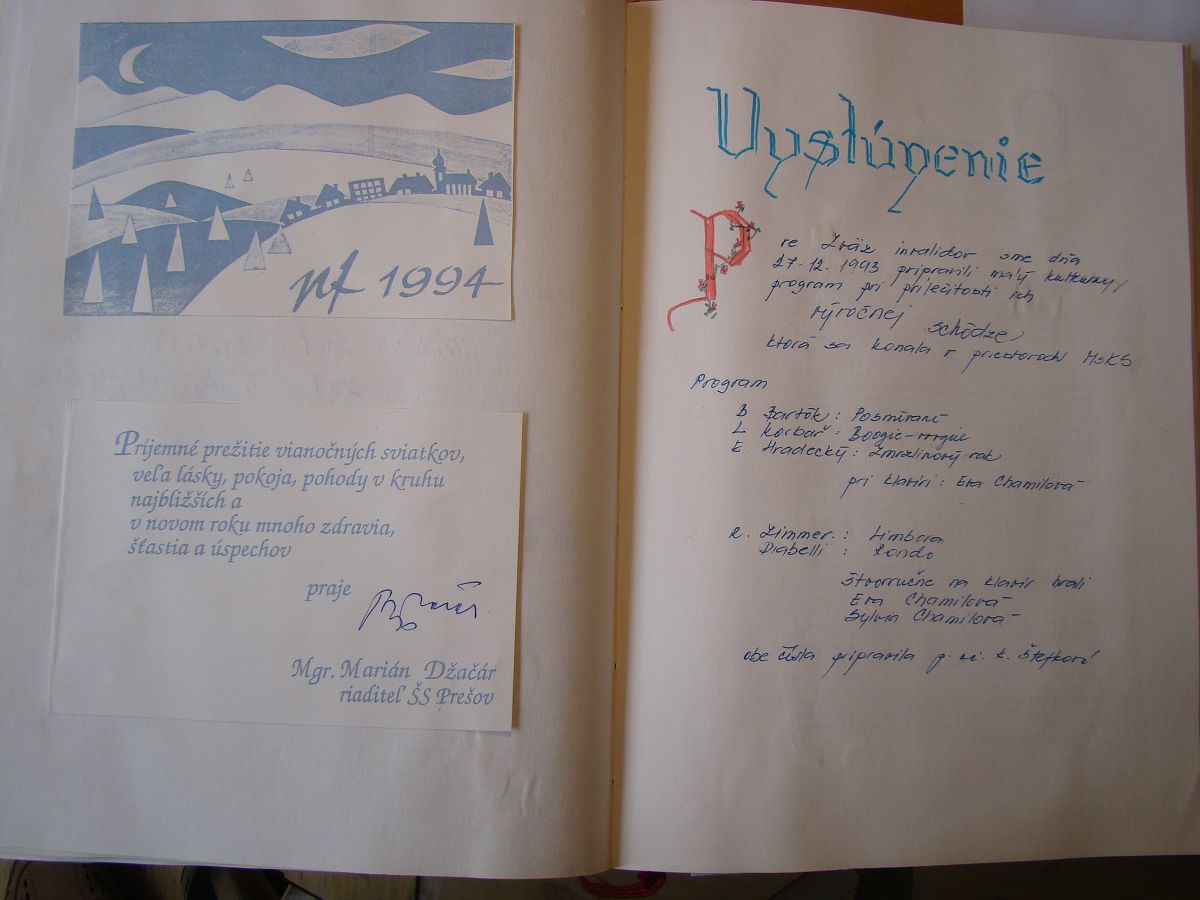 pf 1994
Príjemné prežitie vianočných sviatkov,
veľa lásky, pokoja, pohody v kruhu
najbližších a
v novom roku mnoho zdravia,
šťastia a úspechov
praje
Mgr. Marián Džačár
riaditeľ ŠS Prešov
Vystúpenie
Pre Zväz invalidov sme dňa
27.12. 1993 pripravili malý kultúrny
program pri príležitosti ich
výročnej
schôdze,
ktorá sa konala v priestoroch MsKS
Program
B Bartók : Posmívání
L Korbař : Boogie-woogie
E. Hradecký : Zmrzlinový rok
pri klavíri : Eva Chamilová
R. Zimmer. : Limbora
Diabelli : Rondo
Štvorručne na klavír hrali
Eva Chamilová
Sylvia Chamilová
obe čísla pripravila p. uč. K. Štefková